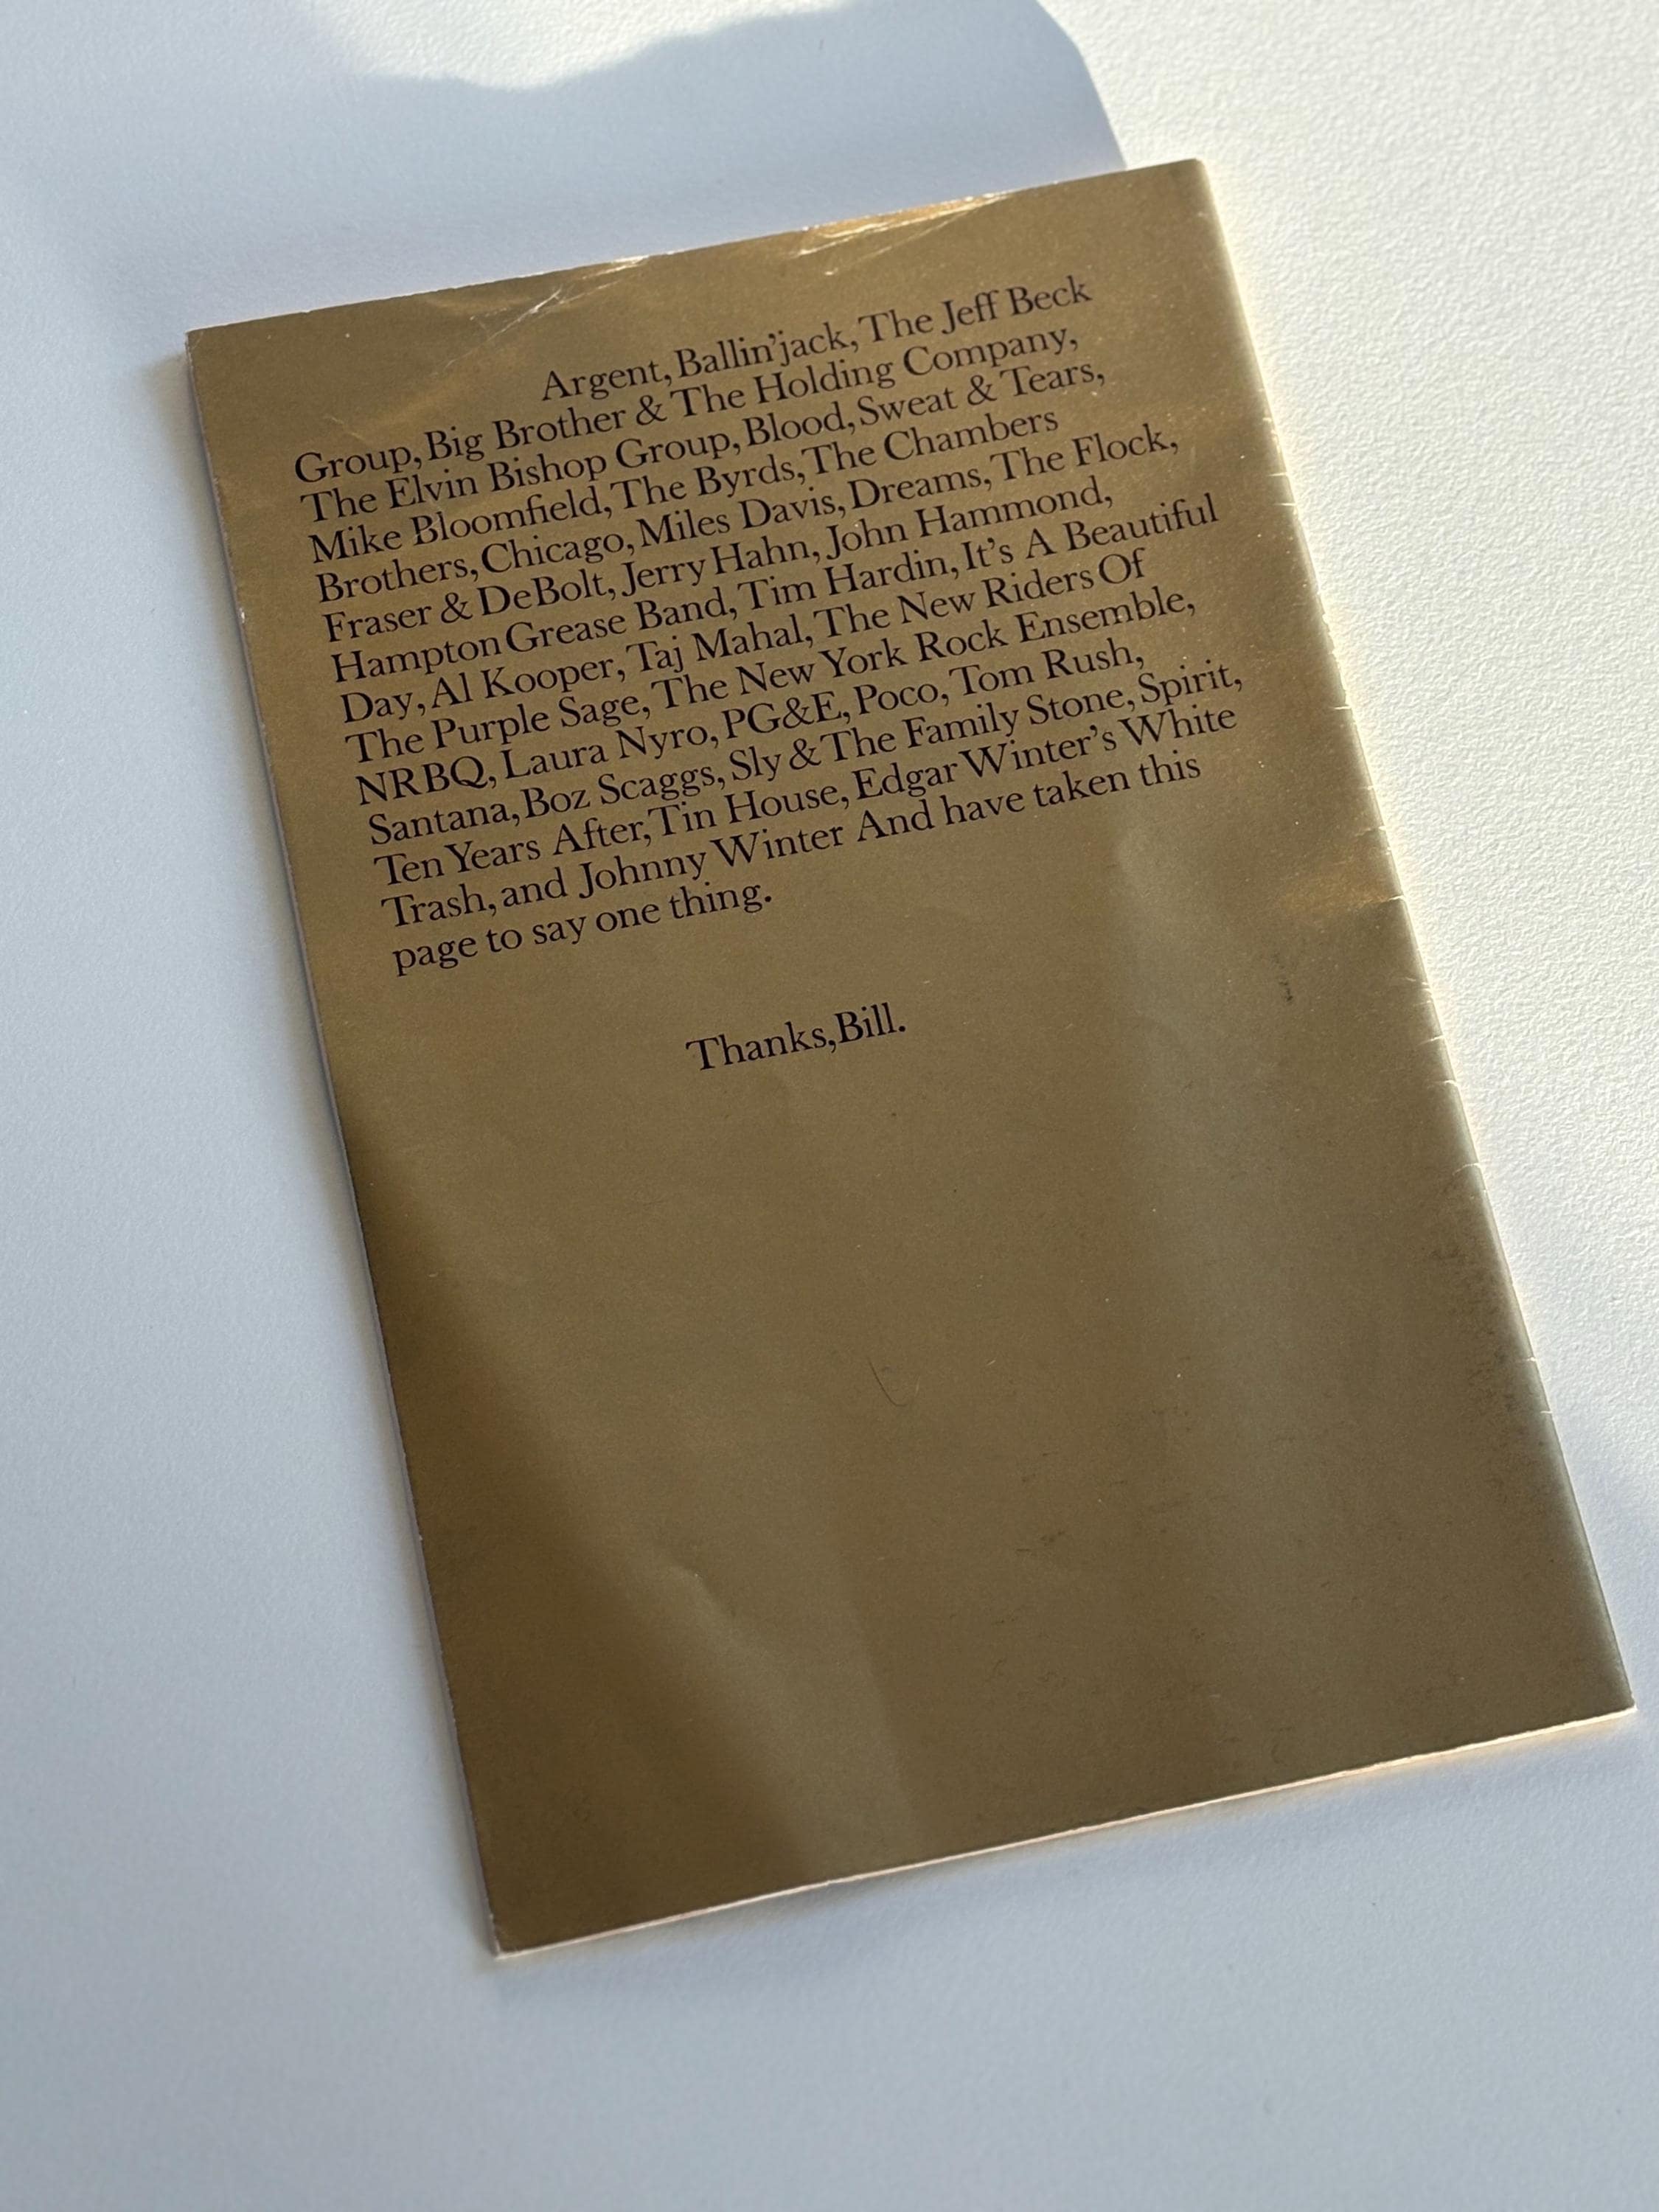 Argent, Ballin'jack, The Jeff Beck
Group, Big Brother & The Holding Company,
The Elvin Bishop Group, Blood, Sweat & Tears,
Mike Bloomfield, The Byrds, The Chambers
Brothers, Chicago, Miles Davis, Dreams, The Flock,
Fraser & DeBolt, Jerry Hahn, John Hammond,
Hampton Grease Band, Tim Hardin, It's A Beautiful
Day, Al Kooper, Taj Mahal, The New Riders Of
The Purple Sage, The New York Rock Ensemble,
NRBQ, Laura Nyro, PG&E, Poco, Tom Rush,
Santana, Boz Scaggs, Sly & The Family Stone, Spirit,
Ten Years After, Tin House, Edgar Winter's White
Trash, and Johnny Winter And have taken this
page to say one thing.
Thanks, Bill.